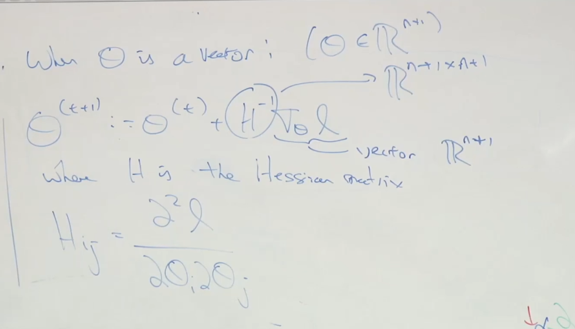 . When Θ is a vector: (Θ ∈ ℝ^{n+1})
ℝ^{n+1×n+1}
Θ^{(t+1)} := Θ^{(t)} + H^{-1} ∇_θ ℓ
vector ℝ^{n+1}
where H is the Hessian matrix
H_{ij} = ∂²ℓ / ∂Θ_i ∂Θ_j